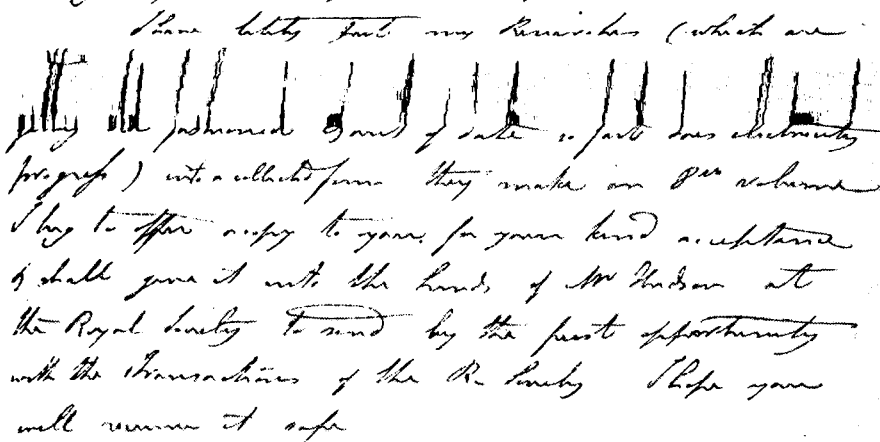 I have lately put my Researches (which are
getting old fashioned & out of date so fast does electricity
progress) into a collected form they make an 8vo volume
I beg to offer a copy to you for your kind acceptance
& shall give it into the hands of Mr Hudson at
the Royal Society to send by the first opportunity
with the Transactions of the R. Society I hope you
will receive it safe